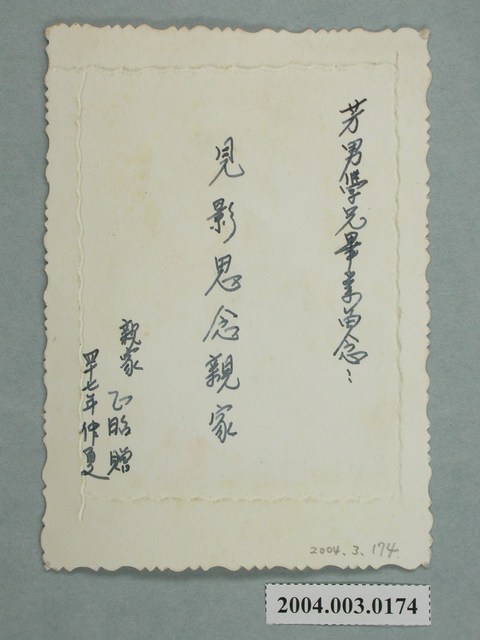 芳男學兄畢業留念：
見影思念親家
親家 正昭 贈
四十七年仲夏
2004.3.174
2004.003.0174